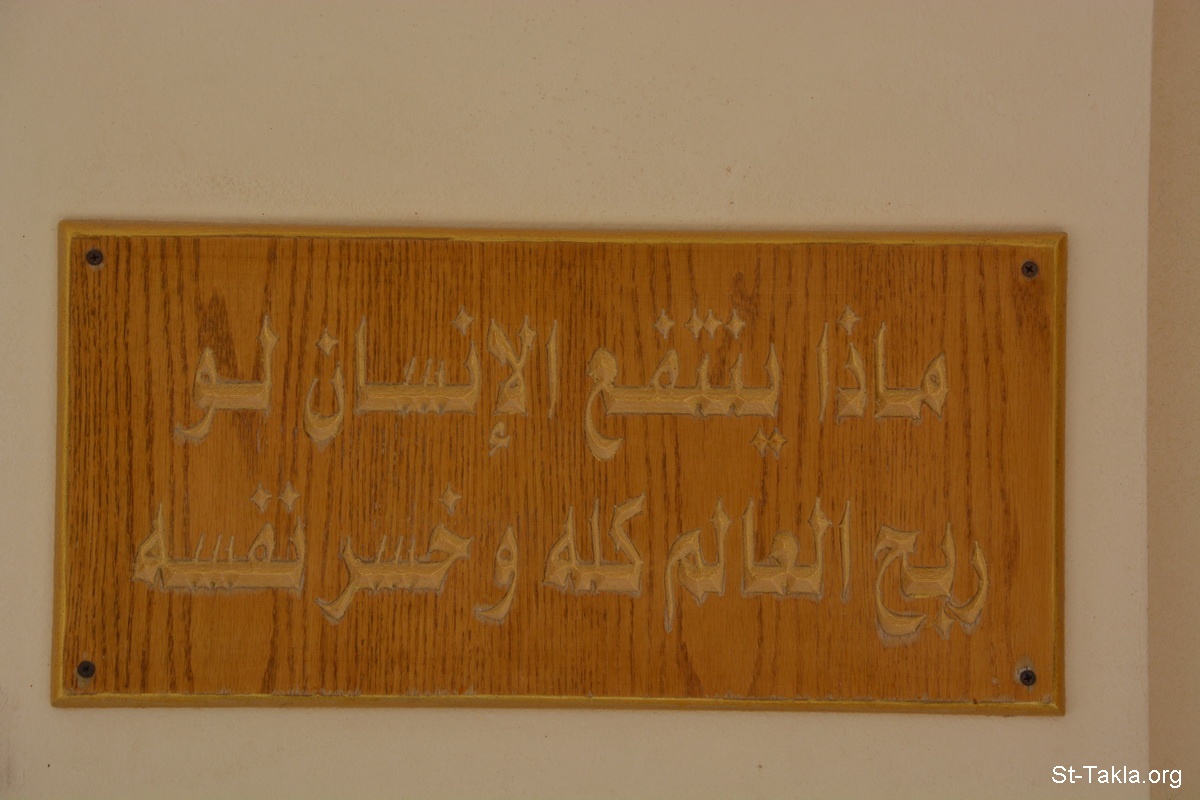 ماذا ينتفع الإنسان لو
ربح العالم كله و خسر نفسه
St-Takla.org